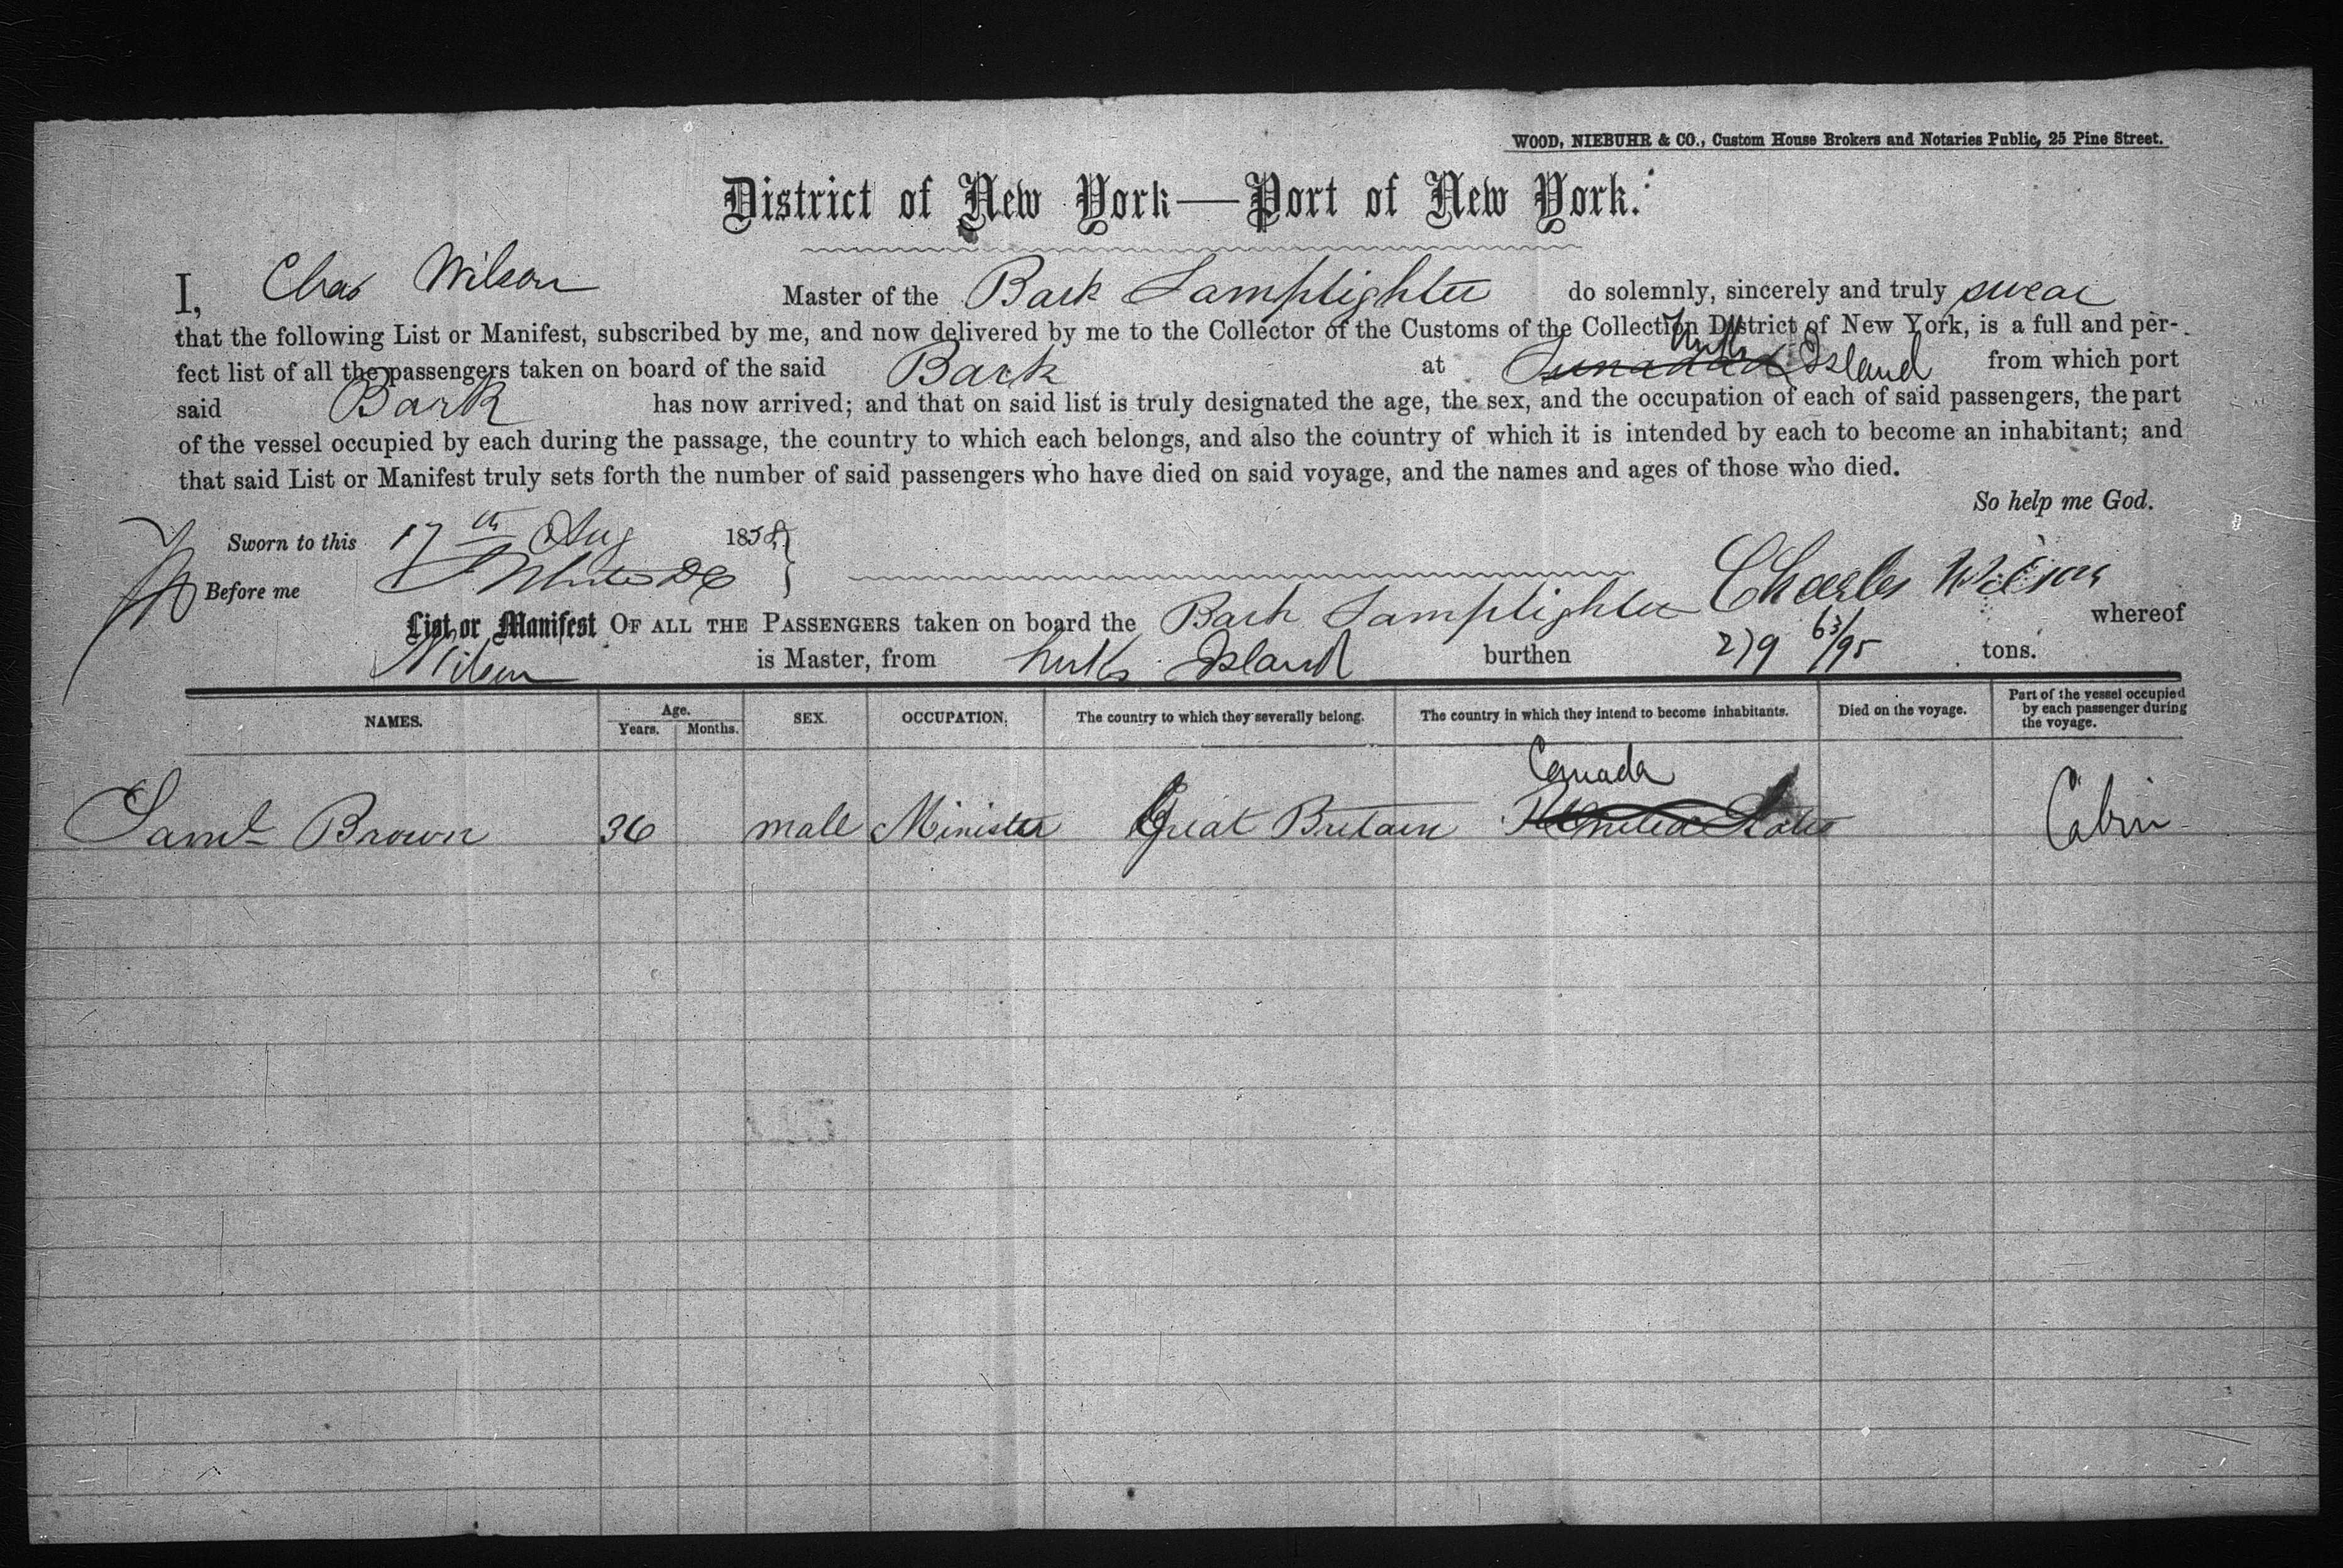 WOOD, NIEBUHR & CO., Custom House Brokers and Notaries Public, 25 Pine Street.
District of New York—Port of New York.
I, Chas Wilson Master of the Bark Lamplighter do solemnly, sincerely and truly swear
that the following List or Manifest, subscribed by me, and now delivered by me to the Collector of the Customs of the Collection District of New York, is a full and per-
fect list of all the passengers taken on board of the said Bark at Turks Island from which port
said Bark has now arrived; and that on said list is truly designated the age, the sex, and the occupation of each of said passengers, the part
of the vessel occupied by each during the passage, the country to which each belongs, and also the country of which it is intended by each to become an inhabitant; and
that said List or Manifest truly sets forth the number of said passengers who have died on said voyage, and the names and ages of those who died.
So help me God.
Sworn to this 17th Aug 1858
Before me
Charles Wilson
List or Manifest OF ALL THE PASSENGERS taken on board the Bark Lamplighter whereof
Wilson is Master, from Turks Island burthen 279 63/95 tons.
NAMES. Age. Years. Months. SEX. OCCUPATION. The country to which they severally belong. The country in which they intend to become inhabitants. Died on the voyage. Part of the vessel occupied by each passenger during the voyage.
Canada
Saml Brown 36 male Minister Great Britain The United States Cabin